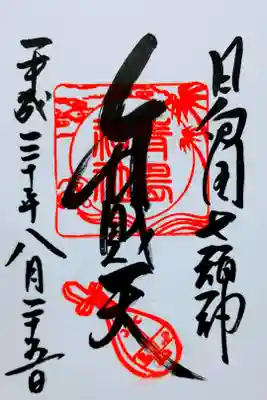 日向国七福神
弁財天
平成三十年八月二十五日